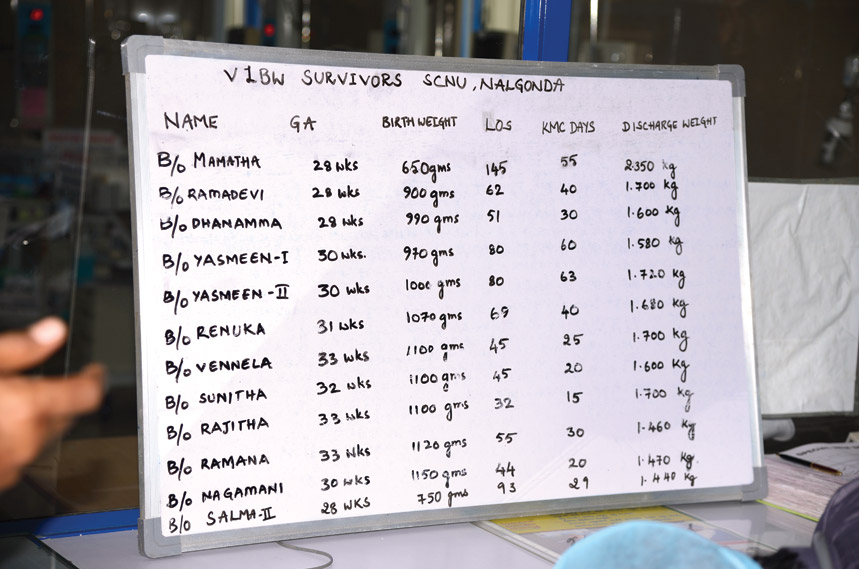 V1BW SURVIVORS SCNU, NALGONDA
NAME GA BIRTH WEIGHT LOS KMC DAYS DISCHARGE WEIGHT
B/o MAMATHA 28 wks 650gms 145 55 2.350 kg
B/o RAMADEVI 28 wks 900 gms 62 40 1.700 kg
B/o DHANAMMA 28 wks 990 gms 51 30 1.600 kg
B/o YASMEEN-I 30 wks. 970 gms 80 60 1.580 kg
B/o YASMEEN-II 30 wks 1000 gms 80 63 1.720 kg
B/o RENUKA 31 wks 1070 gms 69 40 1.680 kg
B/o VENNELA 33 wks 1100 gms 45 25 1.700 kg
B/o SUNITHA 32 wks 1100 gms 45 20 1.600 kg
B/o RAJITHA 33 wks 1100 gms 32 15 1.700 kg
B/o RAMANA 33 wks 1120 gms 55 30 1.460 kg
B/o NAGAMANI 30 wks 1150 gms 44 20 1.470 kg.
B/o SALMA-II 28 WKS 750 gms 93 29 1.440 kg